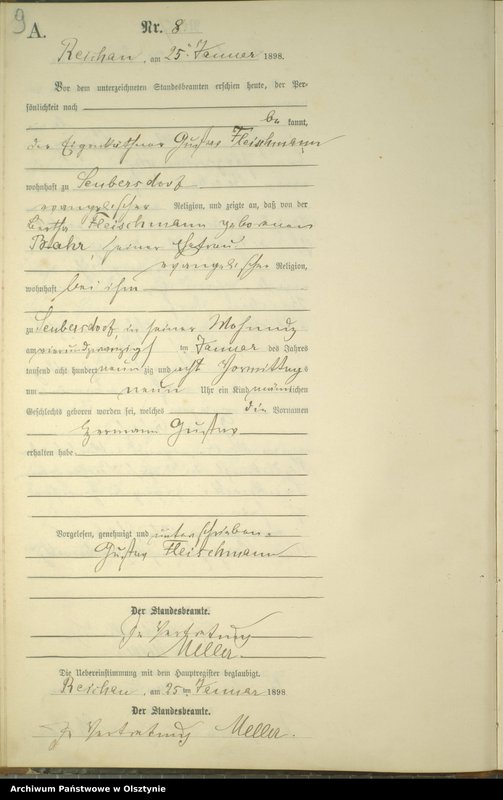 9
A.
Nr. 8
Reichau, am 25ten Januar 1898.
Vor dem unterzeichneten Standesbeamten erschien heute, der Per-
sönlichkeit nach
be kannt,
der Eigenkäthner Gustav Fleischmann
wohnhaft zu Seubersdorf
evangelischer Religion, und zeigte an, daß von der
Bertha Fleischmann geborenen
seiner Ehefrau
evangelischer Religion,
wohnhaft bei ihm
zu Seubersdorf in seiner Wohnung
am vierundzwanzigsten ten Januar des Jahres
tausend acht hundert neun zig und acht Vormittags
um neun Uhr ein Kind männlichen
Geschlechts geboren worden sei, welches die Vornamen
Hermann Gustav
erhalten habe.
Vorgelesen, genehmigt und unterschrieben.
Gustav Fleischmann
Der Standesbeamte.
In Vertretung
Meller.
Die Uebereinstimmung mit dem Hauptregister beglaubigt.
Reichau, am 25ten Januar 1898
Der Standesbeamte.
In Vertretung Meller.
Archiwum Państwowe w Olsztynie